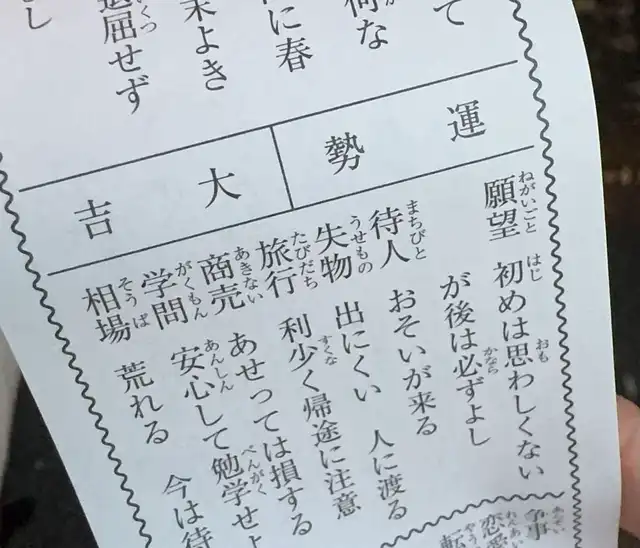 て
何な
に春
末よき
くつ
屈せず
し
運勢
大吉
ねがいごと はじ おも
願望 初めは思わしくない
かなら
が後は必ずよし
まちびと
待人 おそいが来る
うせもの
失物 出にくい 人に渡る
たびだち すくな
旅行 利少く帰途に注意
あきない
商売 あせっては損する
がくもん あんしん べんがく
学問 安心して勉学せよ
そうば
相場 荒れる 今は待
争事
れんあい
恋愛
転